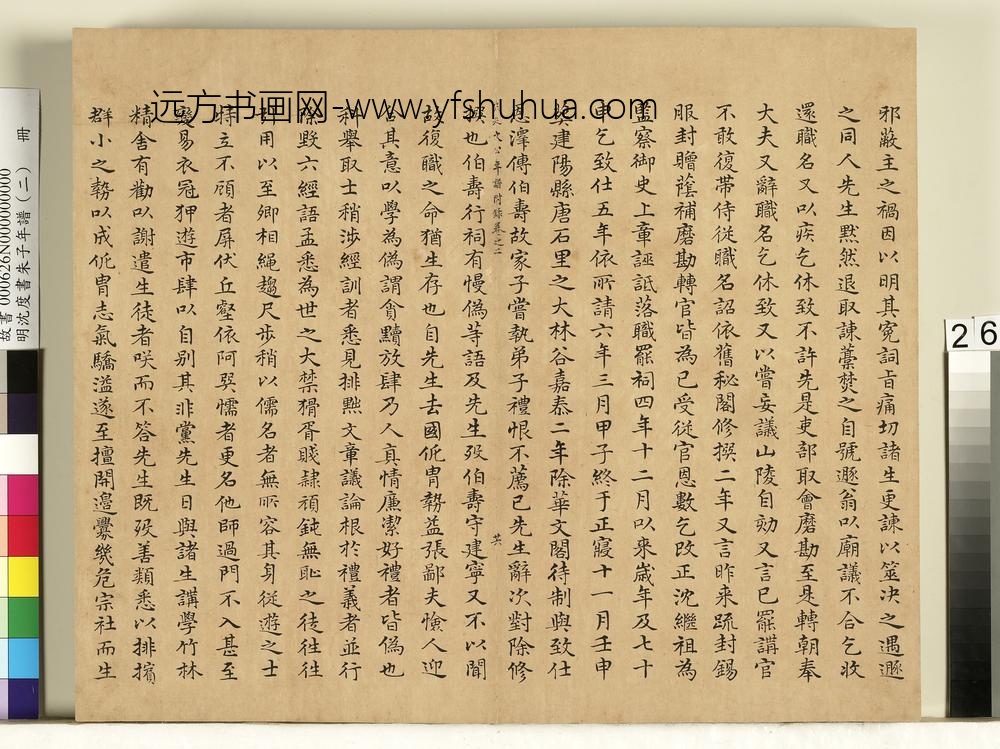 邪蔽主之禍因以明其冤詞旨痛切諸生更諫以筮决之遇遯
之同人先生黙然退取諫藁焚之自號遯翁以廟議不合乞收
還職名又以疾乞休致不許先是吏部取會磨勘至是轉朝奉
大夫又辭職名乞休致又以嘗妄議山陵自劾又言已罷講官
不敢復帶侍從職名詔依舊秘閣修撰二年又言昨来疏封錫
服封贈蔭補磨勘轉官皆為已受従官恩數乞改正沈繼祖為
監察御史上章誣詆落職罷祠四年十二月以来歳年及七十
申乞致仕五年依所請六年三月甲子終于正寢十一月壬申
葬建陽縣唐石里之大林谷嘉泰二年除華文閣待制與致仕
恩澤傅伯壽故家子嘗執弟子禮恨不薦已先生辭次對除修
文公年譜附錄卷之二
撰也伯壽行祠有慢偽等語及先生歿伯壽守建寧又不以聞
故復職之命猶生存也自先生去國侂胄勢益張鄙夫憸人迎
合其意以學為偽謂貪黷放肆乃人真情廉潔好禮者皆偽也
科舉取士稍涉經訓者悉見排黜文章議論根於禮義者並行
除毁六經語孟悉為世之大禁猾胥賤隸頑鈍無恥之徒往往
引用以至卿相繩趨尺步稍以儒名者無所容其身從遊之士
特立不顧者屏伏丘壑依阿巽懦者更名他師過門不入甚至
變易衣冠狎遊市肆以自别其非黨先生日與諸生講學竹林
精舍有勸以謝遣生徒者咲而不答先生既歿善類悉以排擯
群小之勢以成侂胄志氣驕溢遂至擅開邊釁幾危宗社而生
远方书画网-www.yfshuhua.com
故書 000626N000000000
明沈度書朱子年譜(二) 冊
26